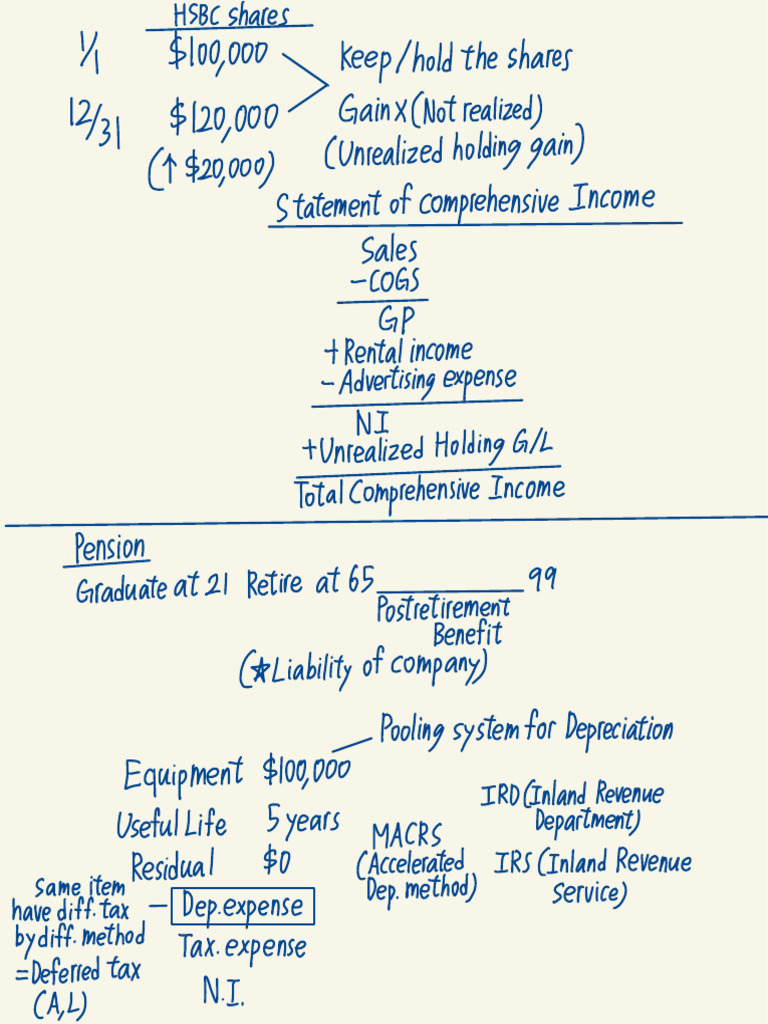 HSBC shares
1/1 $100,000
Keep/hold the shares
12/31 $120,000
Gain X (Not realized)
(↑ $20,000)
(Unrealized holding gain)
Statement of comprehensive Income
Sales
-COGS
GP
+Rental income
- Advertising expense
NI
+Unrealized Holding G/L
Total Comprehensive Income
Pension
Graduate at 21 Retire at 65 99
Postretirement
Benefit
(★Liability of company)
Pooling system for Depreciation
Equipment $100,000
Useful Life 5 years
Residual $0
MACRS
(Accelerated
Dep. method)
IRD (Inland Revenue
Department)
IRS (Inland Revenue
Service)
Same item
have diff. tax
by diff. method
=Deferred tax
(A,L)
- Dep.expense
Tax. expense
N.I.